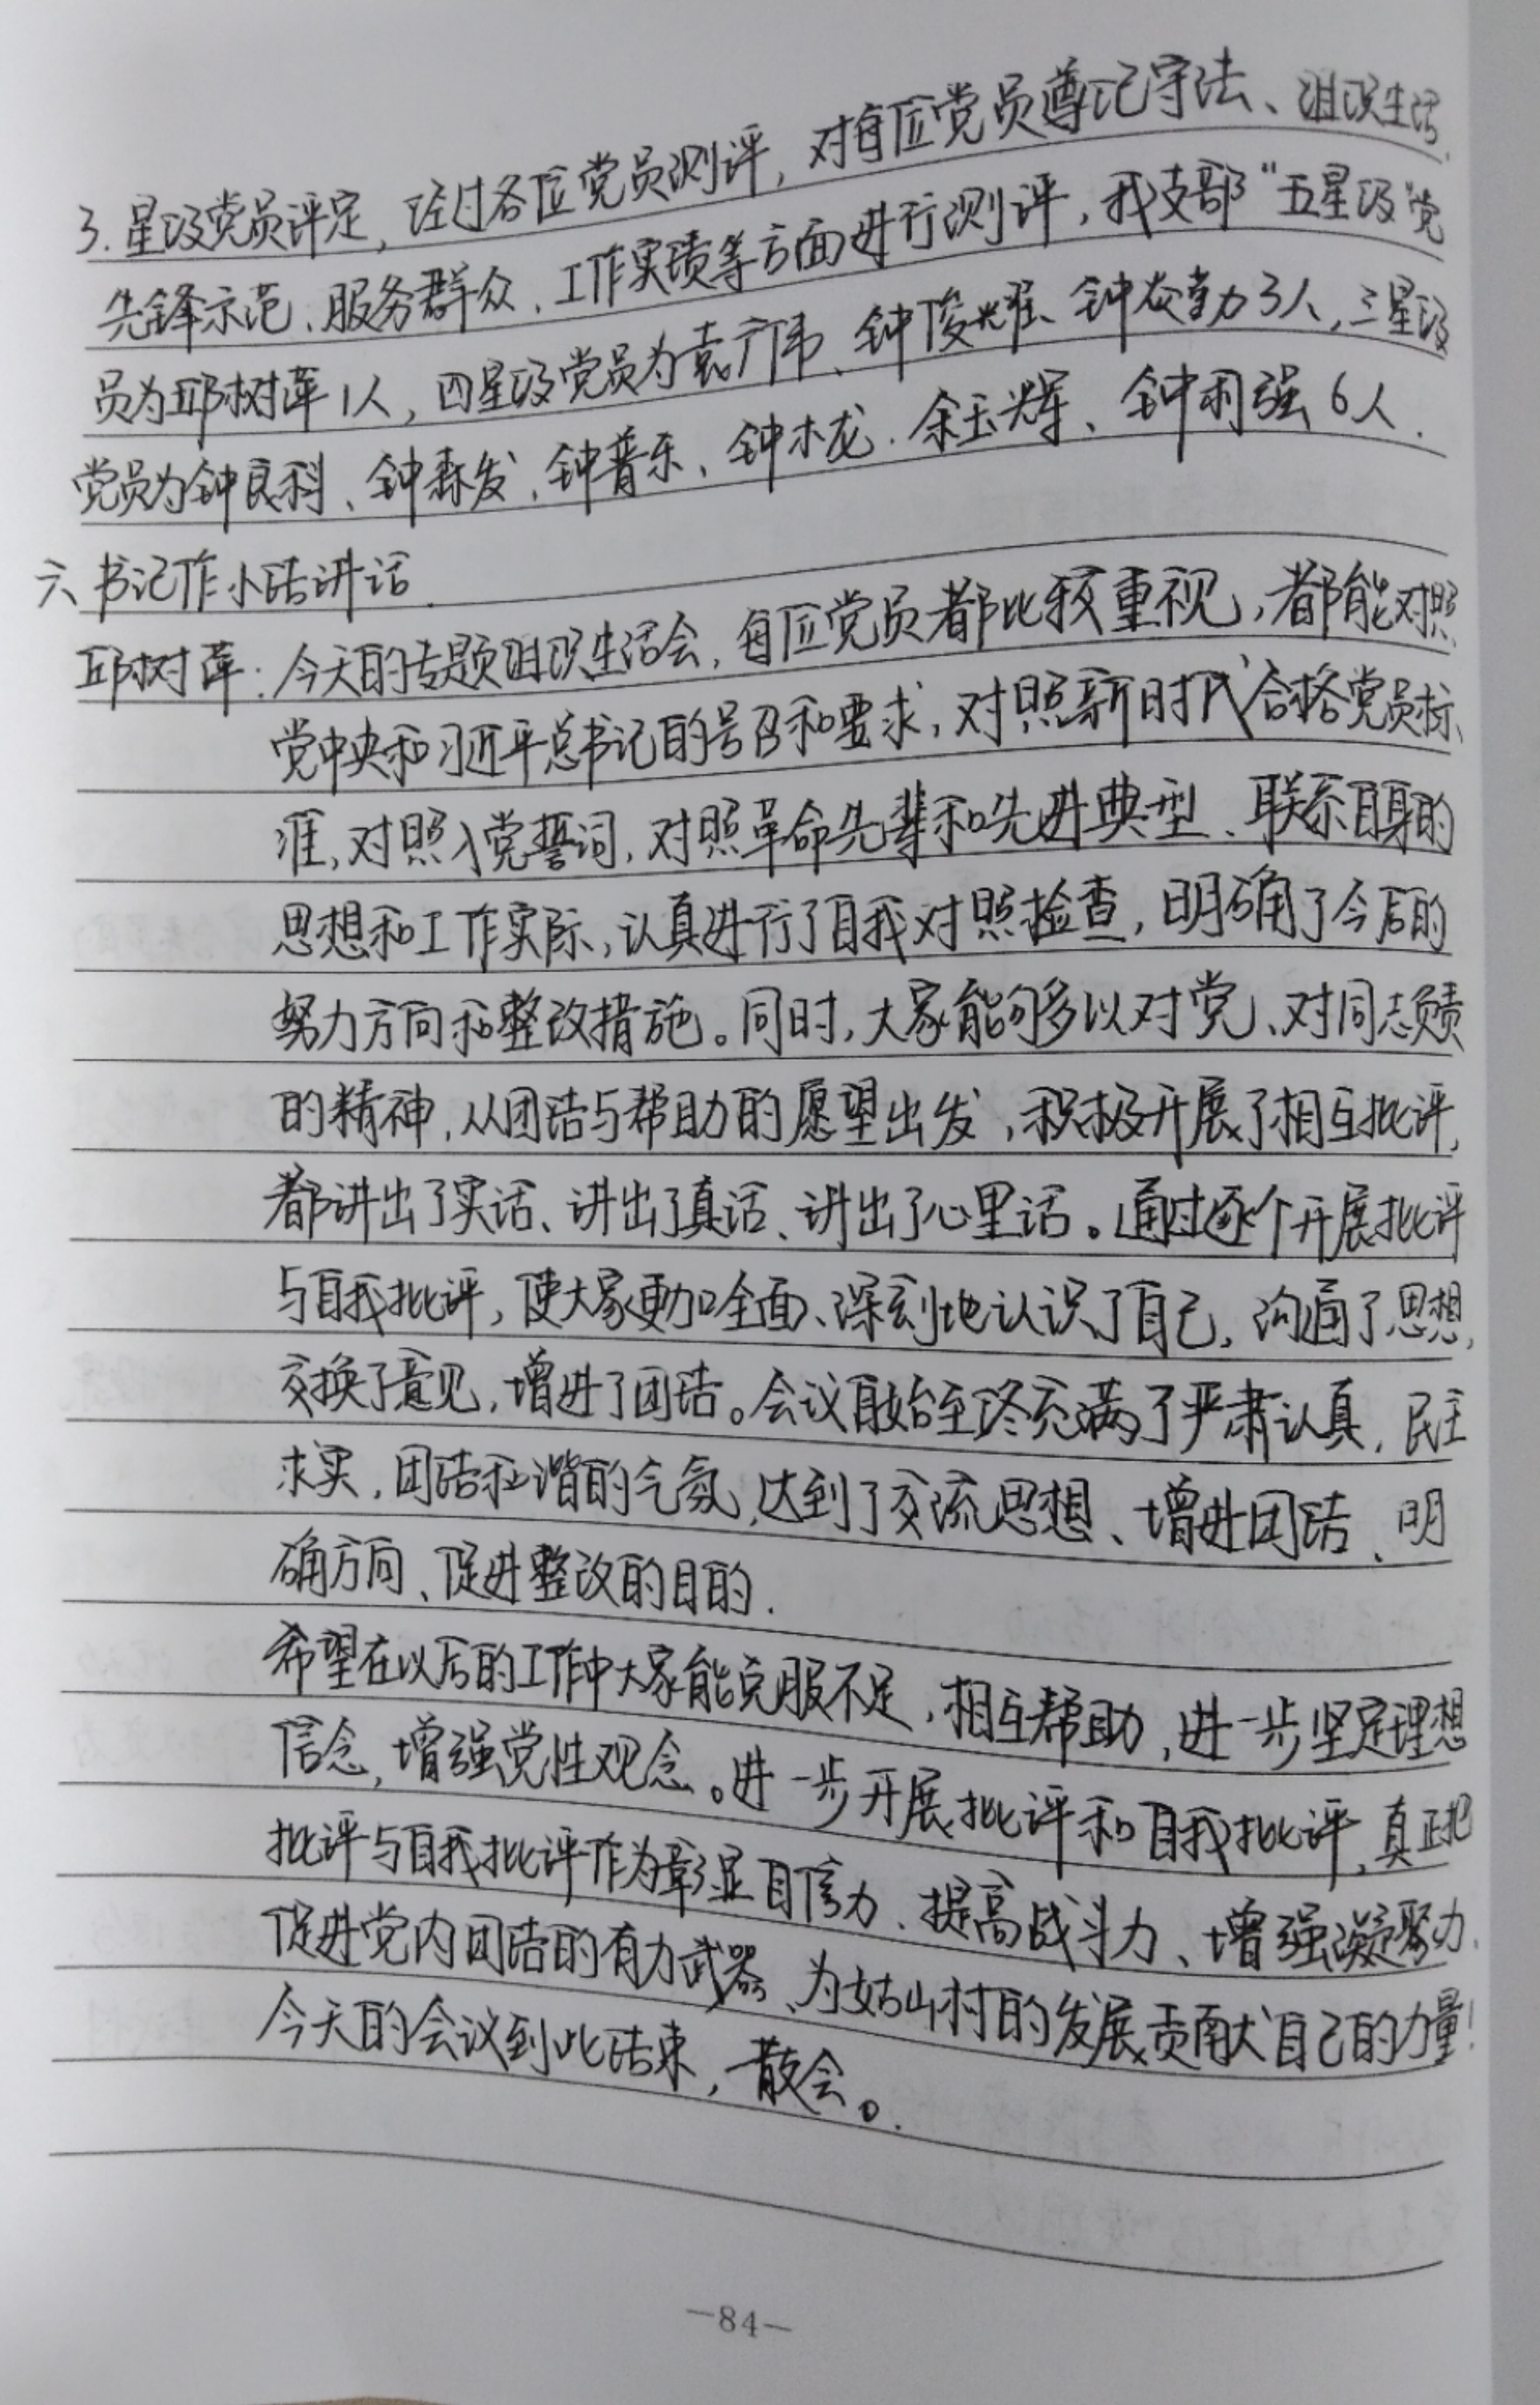 3. 星级党员评定，经过各位党员测评，对每位党员遵纪守法、组织生活、
先锋示范、服务群众、工作实绩等方面进行测评，我支部“五星级”党
员为邱树萍1人，四星级党员为袁广伟、钟俊耀、钟友勤3人，三星级
党员为钟良科、钟森发、钟普乐、钟木龙、余玉辉、钟国强6人．
六、书记作小结讲话．
邱树萍：今天的专题组织生活会，每位党员都比较重视，都能对照
党中央和习近平总书记的号召和要求，对照新时代合格党员标
准，对照入党誓词，对照革命先辈和先进典型、联系自身的
思想和工作实际，认真进行了自我对照检查，明确了今后的
努力方向和整改措施。同时，大家能够多以对党、对同志负责
的精神，从团结与帮助的愿望出发，积极开展了相互批评，
都讲出了实话、讲出了真话、讲出了心里话。通过逐个开展批评
与自我批评，使大家更加全面、深刻地认识了自己，沟通了思想，
交换了意见，增进了团结。会议自始至终充满了严肃认真，民主
求实，团结和谐的气氛，达到了交流思想、增进团结、明
确方向、促进整改的目的．
希望在以后的工作中大家能克服不足，相互帮助，进一步坚定理想
信念，增强党性观念。进一步开展批评和自我批评，真正把
批评与自我批评作为彰显自信力、提高战斗力、增强凝聚力、
促进党内团结的有力武器、为姑山村的发展贡献自己的力量！
今天的会议到此结束，散会。
—84—